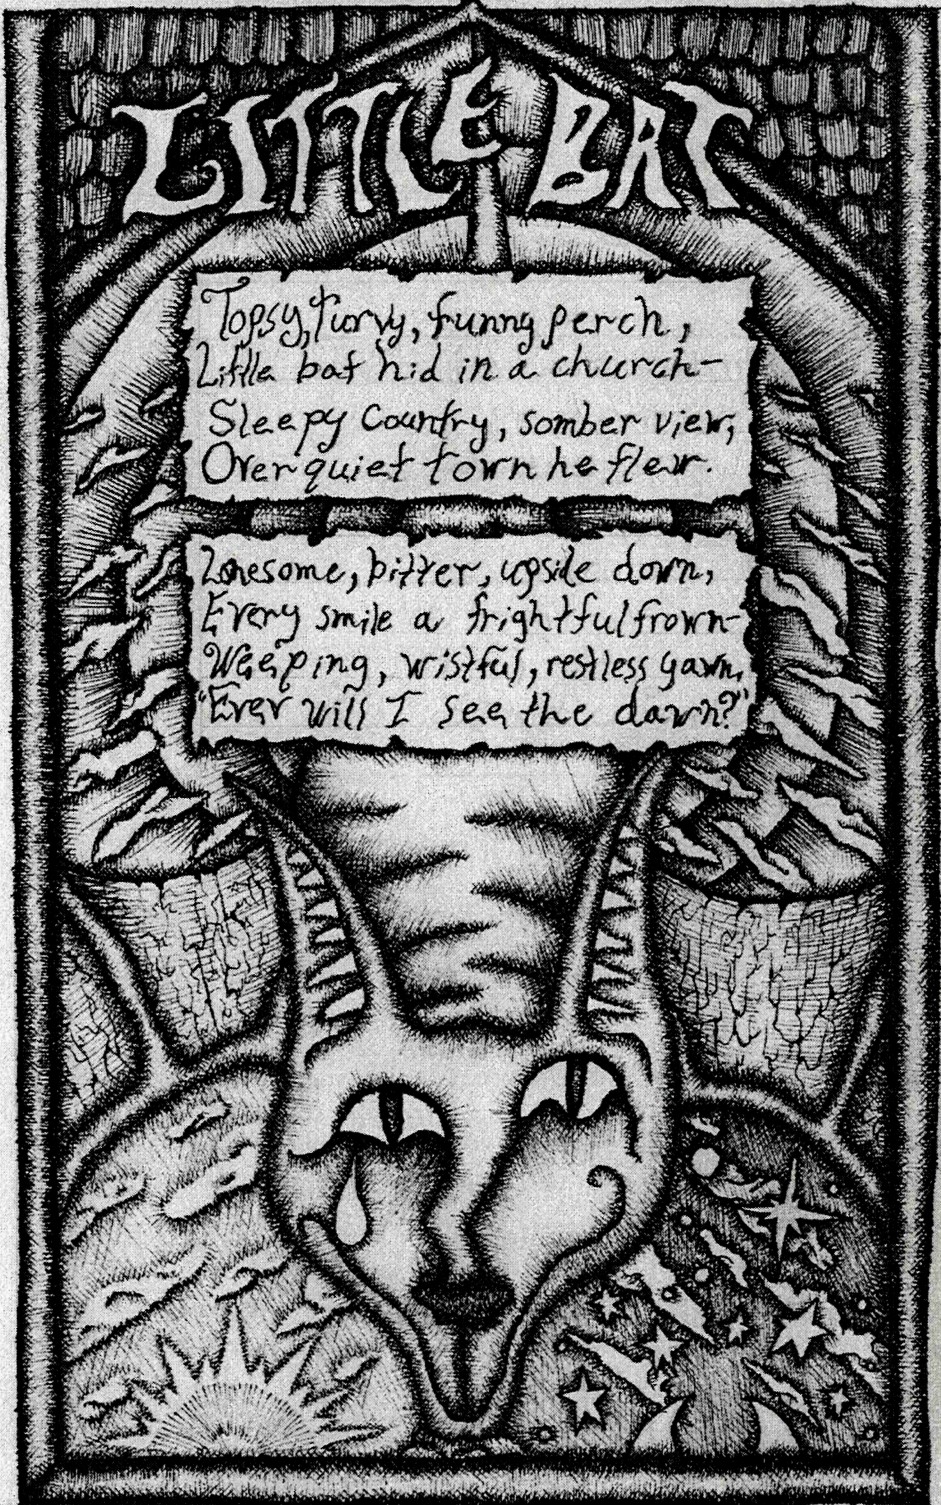 LITTLE BAT
Topsy, turvy, funny perch,
Little bat hid in a church-
Sleepy Country, somber view,
Over quiet town he flew.
Lonesome, bitter, upside down,
Every smile a frightful frown-
Weeping, wistful, restless yawn,
"Ever will I see the dawn?"